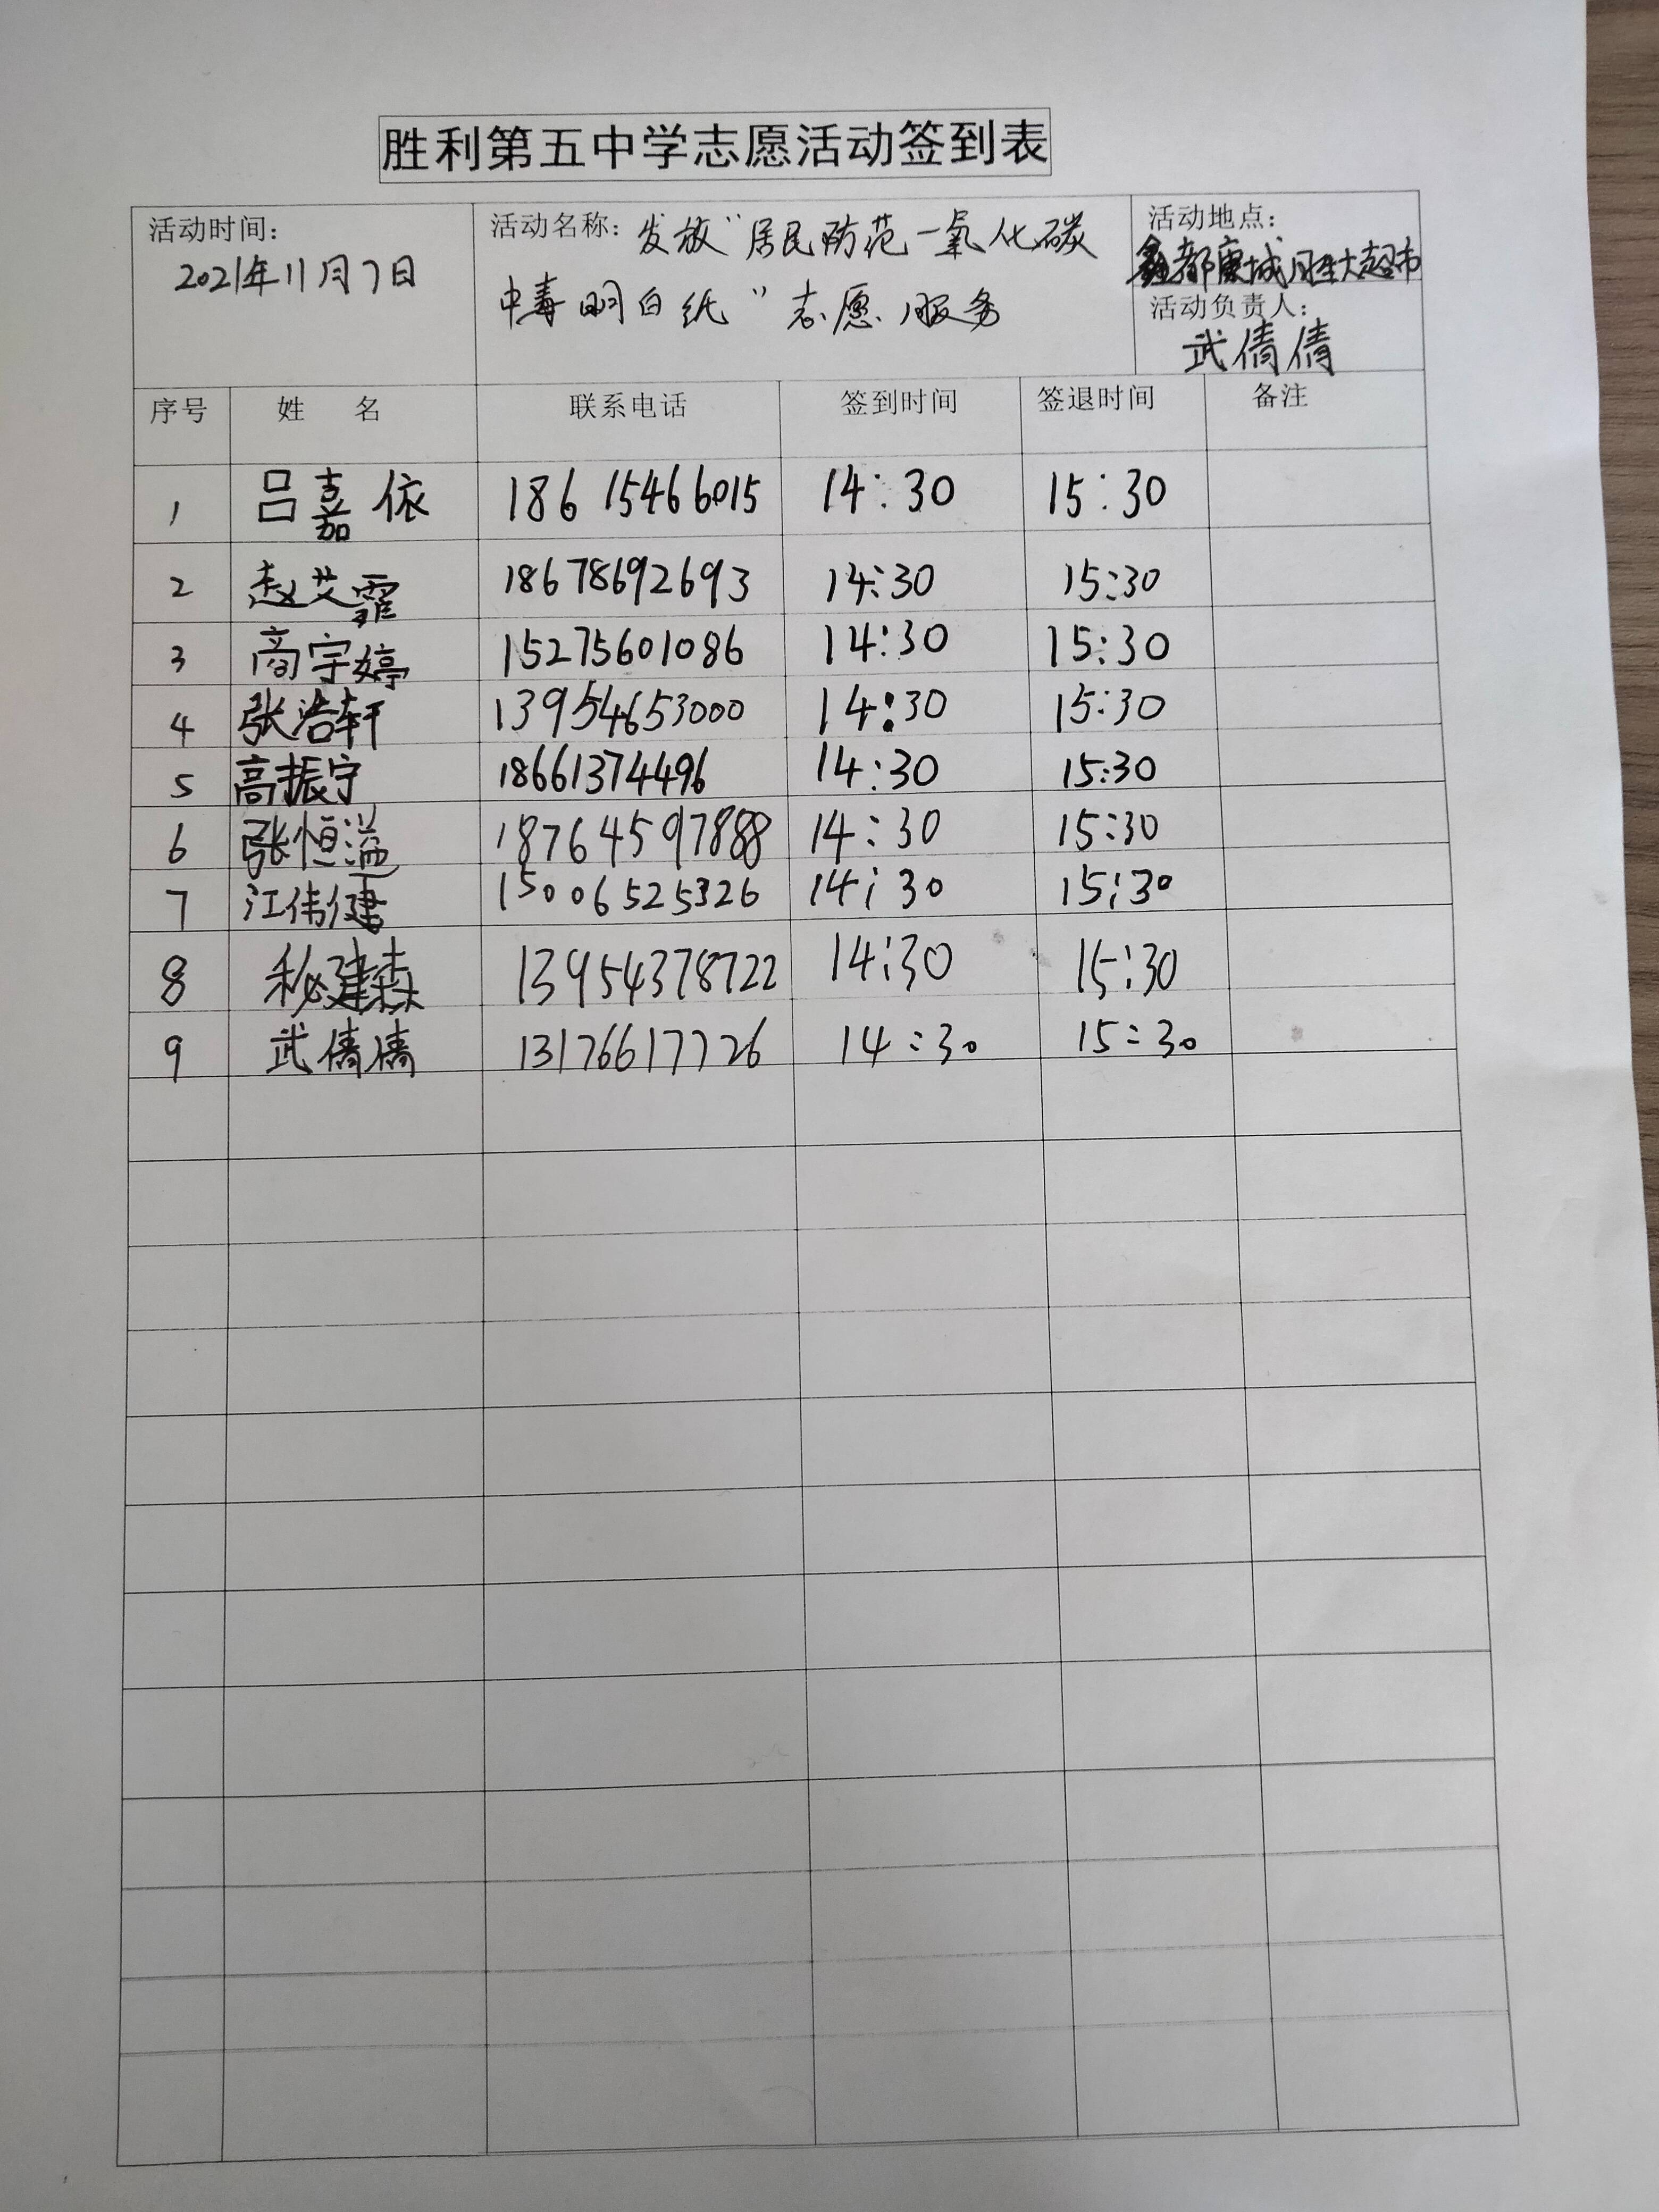 胜利第五中学志愿活动签到表
活动时间：
2021年11月7日
活动名称：发放“居民防范一氧化碳
中毒明白纸”志愿服务
活动地点：
鑫都康城胜大超市
活动负责人：
武倩倩
序号 姓 名 联系电话 签到时间 签退时间 备注
1 吕嘉依 18615466015 14:30 15:30
2 赵艾霏 18678692693 14:30 15:30
3 商宇婷 15275601086 14:30 15:30
4 张浩轩 13954653000 14:30 15:30
5 高振宁 18661374496 14:30 15:30
6 张恒溢 18764597888 14:30 15:30
7 江伟健 15006525326 14:30 15:30
8 秘建森 13954378722 14:30 15:30
9 武倩倩 13176617726 14:30 15:30